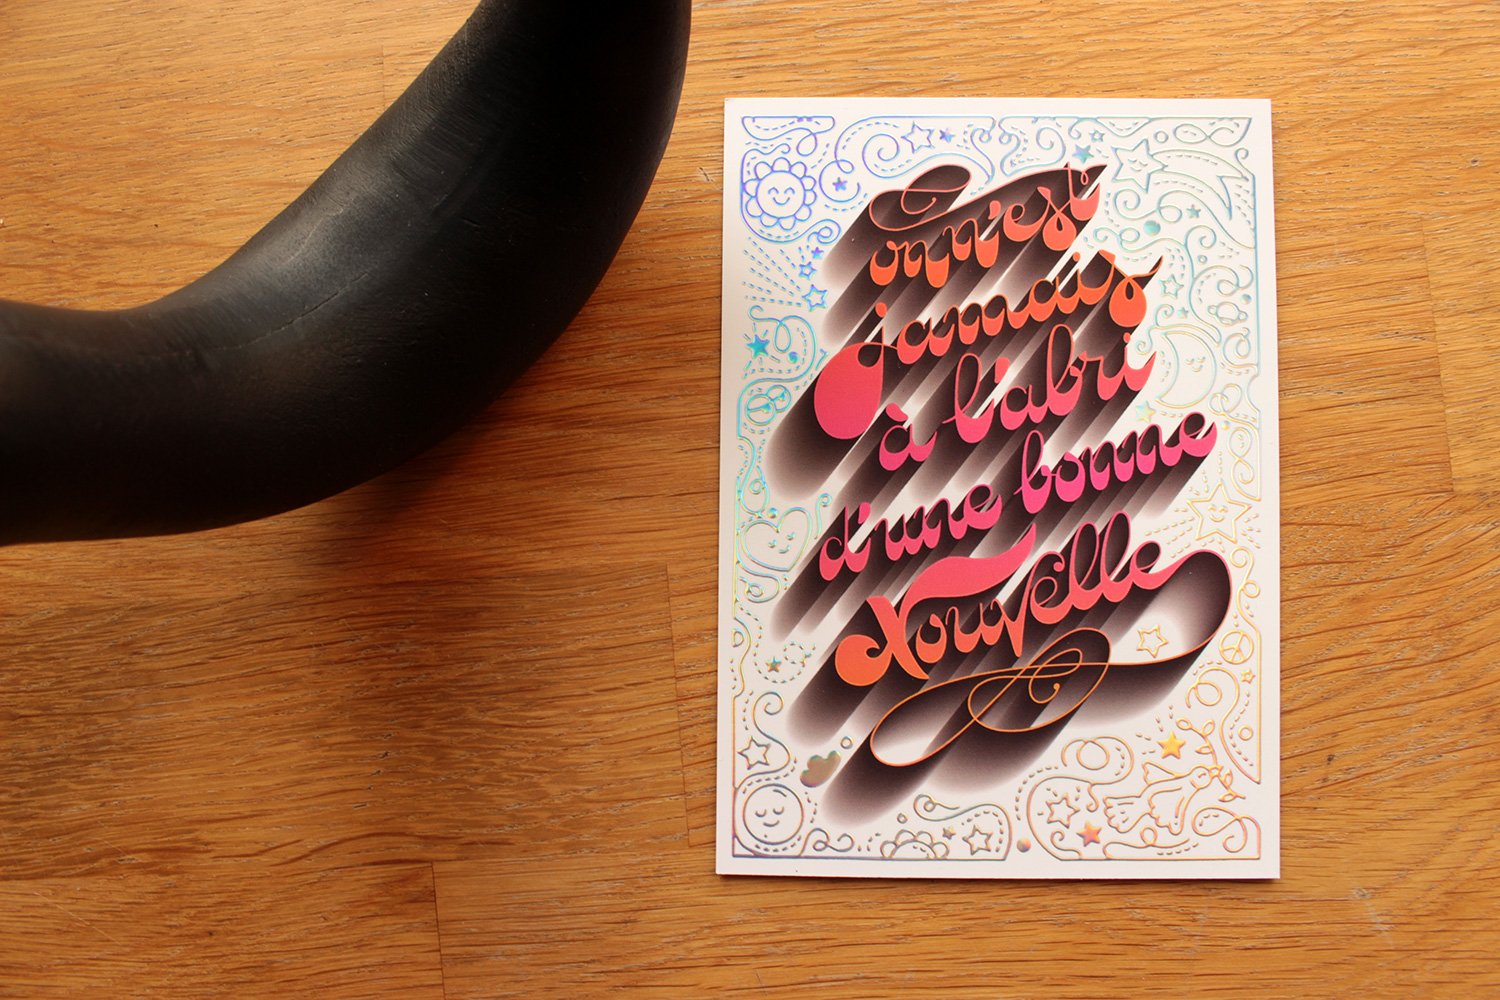 on n'est
jamais
à l'abri
d'une bonne
Nouvelle